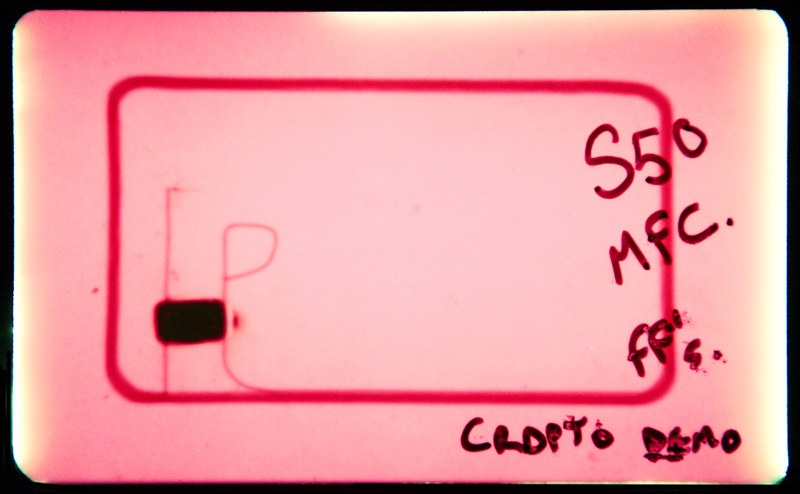 S50
MFC.
FF's.
CRDPTO DEMO